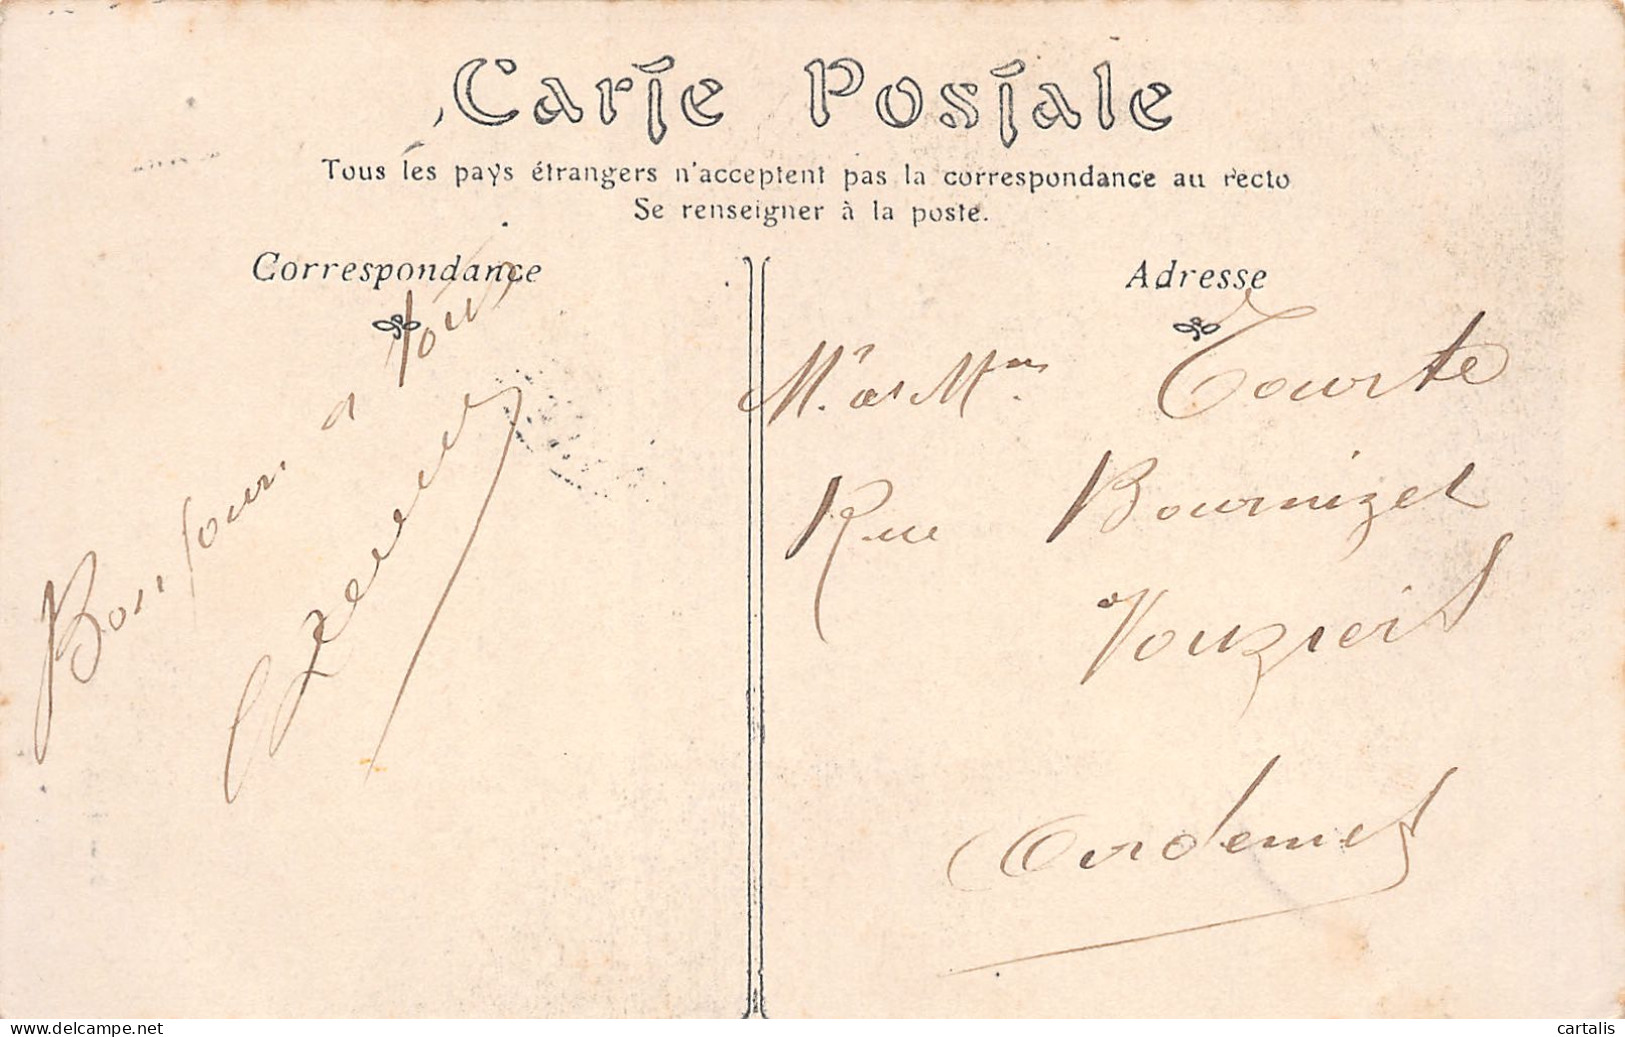 Carte Postale
Tous les pays étrangers n'acceptent pas la correspondance au recto
Se renseigner à la poste.
Correspondance
Bonjour à tous
Adresse
Mr et Mme Tourte
Rue Bournizet
Vouziers
Ardennes
www.delcampe.net
cartalis